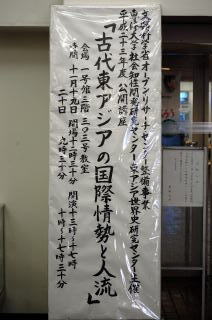 文部科学省オープン・リサーチ・センター整備事業
専修大学社会知性開発研究センター東アジア世界史研究センター主催
平成二十三年度 公開講座
「古代東アジアの国際情勢と人流」
会場 一号館三階 三〇三号教室
時間 十一月十九日 開場十二時三十分 開演十三時〜十七時
二十日 九時三十分 十時〜十七時二十分